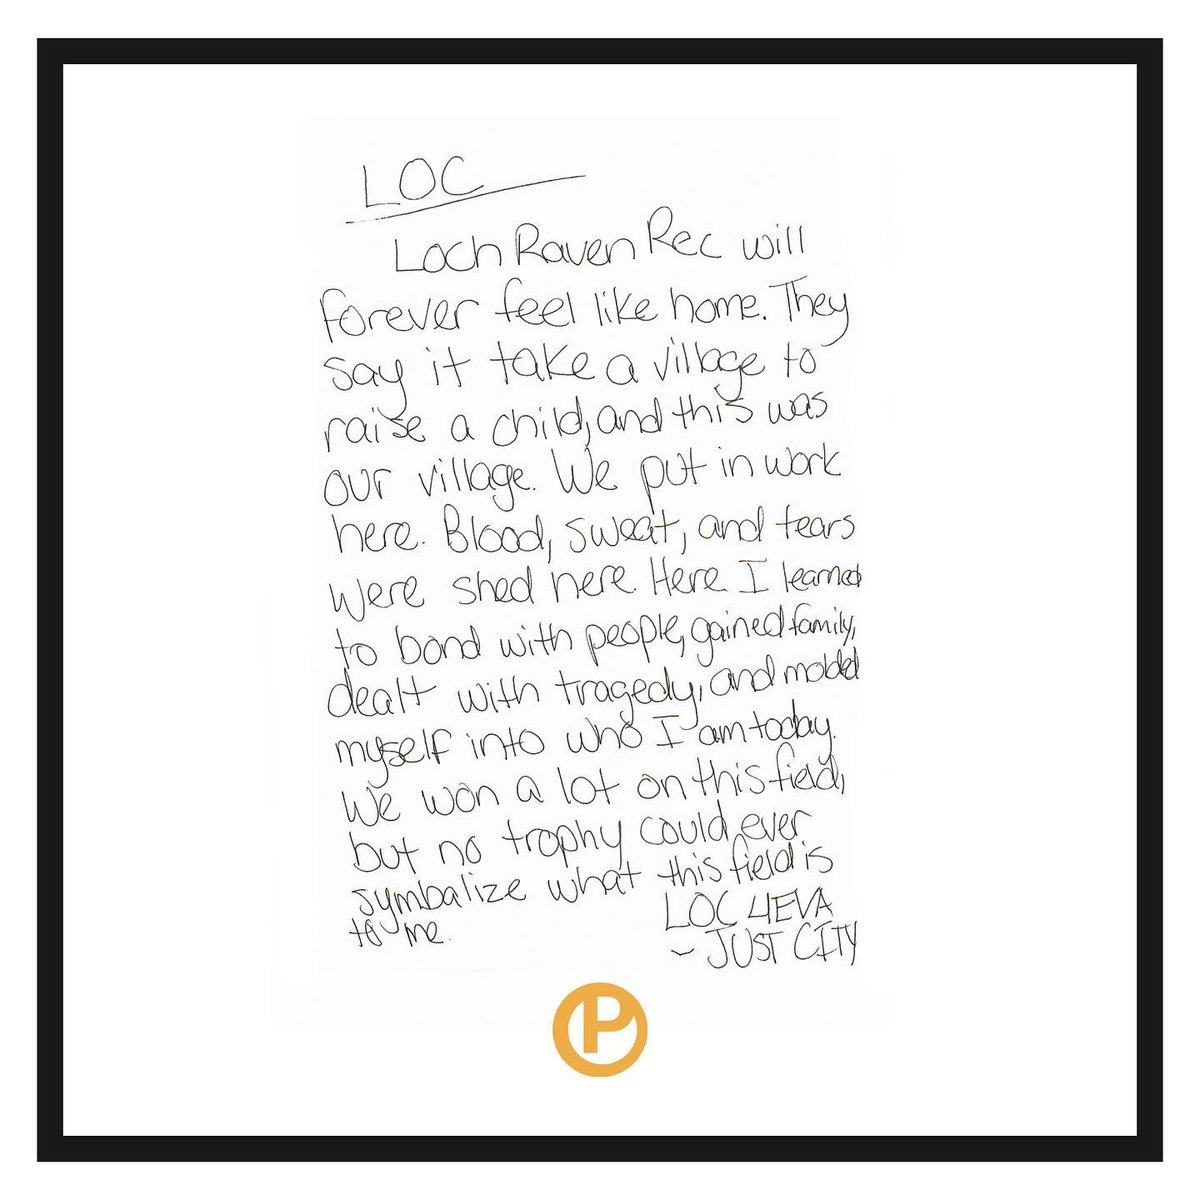 LOC
Loch Raven Rec will
forever feel like home. They
say it take a village to
raise a child, and this was
our village. We put in work
here. Blood, sweat, and tears
were shed here. Here I learned
to bond with people, gained family,
dealt with tragedy, and molded
myself into who I am today.
We won a lot on this field,
but no trophy could ever
symbalize what this field is
to me.
LOC 4EVA
~ JUST CITY
P